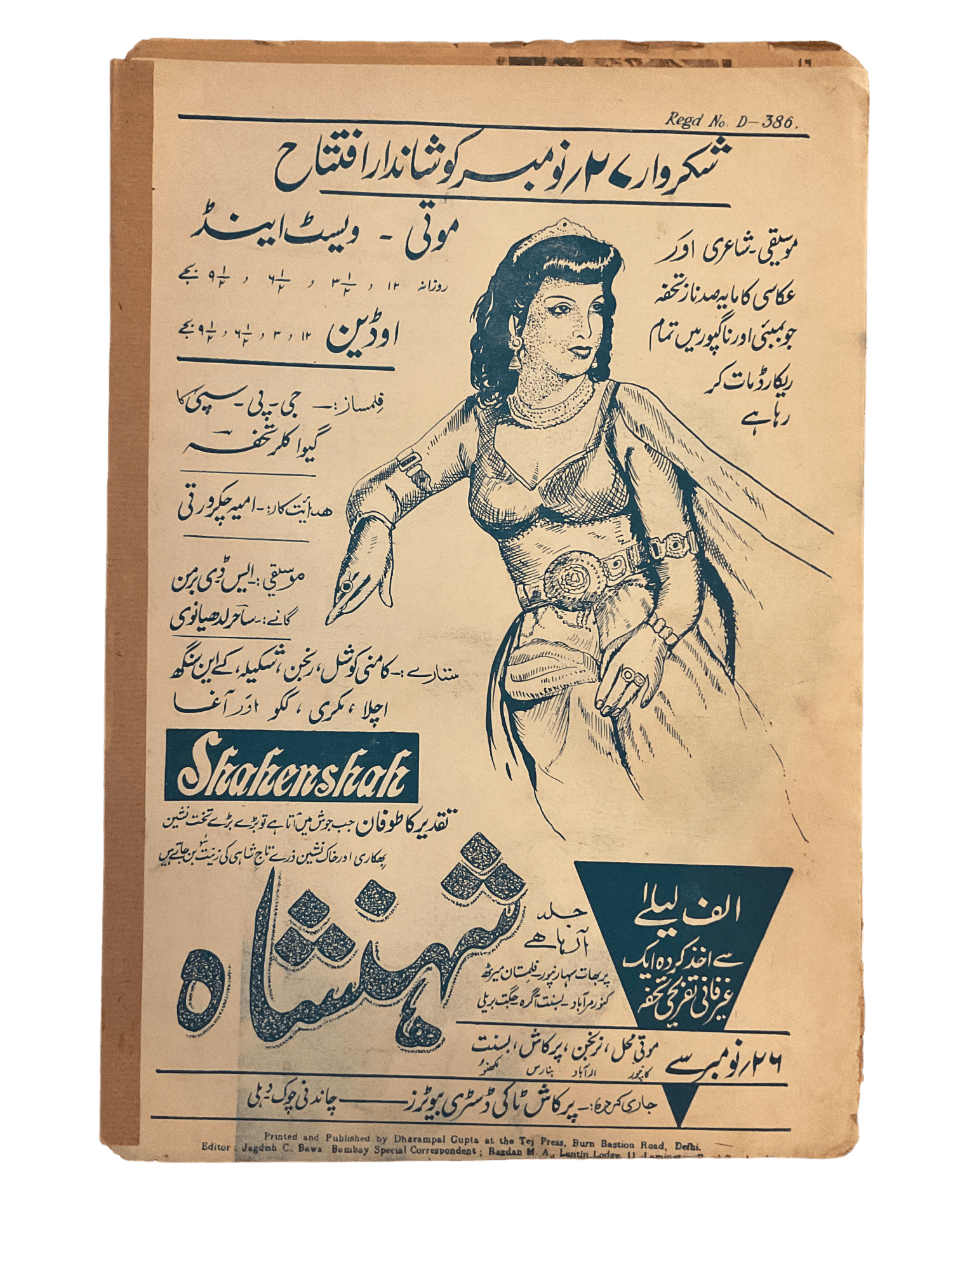 Regd No. D-386.
شکروار ۲۷؍نومبر کو شاندار افتتاح
موسیقی۔شاعری اور
عکاسی کا مایہ صد ناز تحفہ
جو بمبئی اور ناگپور میں تمام
ریکارڈ مات کر
رہا ہے
موتی - ویسٹ اینڈ
روزانہ ۱۲ ، ۳½ ، ۶½ ، ۹½ بجے
اوڈین ۱۲ ، ۳ ، ۶½ ، ۹½ بجے
فلمساز:۔ جی۔پی۔سپی کا
گیوا کلر تحفہ
ہدائیت کار:۔امیہ چکرورتی
موسیقی:۔ایس ڈی برمن
گانے:۔ساحر لدھیانوی
ستارے:۔کامنی کوشل، رنجن، شکیلہ، کے این سنگھ
اچلا ، مکری ، ککو اور آغا
Shahenshah
تقدیر کا طوفان جب جوش میں آتا ہے تو بڑے بڑے تخت نشین
بھکاری اور خاک نشین ذرے تاج شاہی کی زینت بن جاتے ہیں
شہنشاہ
جلد
آرہا ہے
پربھات سہارنپور۔فلمستان میرٹھ
مرادآباد۔بسنت آگرہ۔جگت بریلی
الف لیلےا
سے اخذ کردہ ایک
غیرفانی تفریحی تحفہ
۲۶؍نومبر سے
موتی محل، نرنجن، پرکاش، بسنت
کانپور الہ آباد بنارس لکھنؤ
جاری کردہ:۔پرکاش ٹاکی ڈسٹری بیوٹرز — چاندنی چوک دہلی
Printed and Published by Dharampal Gupta at the Tej Press, Burn Bastion Road, Delhi.
Editor : Jagdish C. Bawa Bombay Special Correspondent ; Razdan M. A., Lentin Lodge, 11,